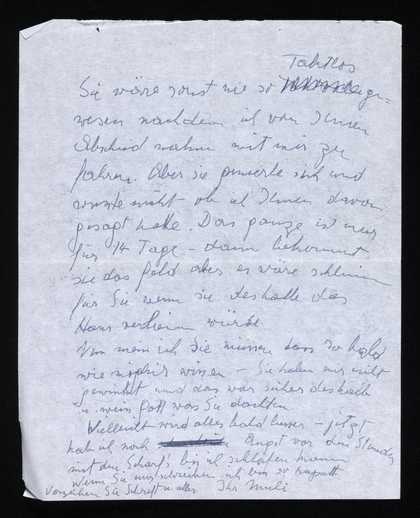 Taktlos
Sie wäre sonst nie so ge-
wesen nachdem ich von Ihnen
Abschied nahm mit mir zu
fahren. Aber sie genierte sich und
wusste nicht ob ich Ihnen davon
gesagt hatte. Das ganze ist nur
für 14 Tage – dann bekommt
sie das Geld aber es wäre schlimm
für Sie wenn sie deshalb das
Haus verlieren würde
ich Sie müssen so bald
wie möglich wissen – Sie haben mir nicht
gewinkt und das war sicher deshalb
u. weiss Gott was Sie dachten
Vielleicht wird alles bald besser – jetzt
hab ich noch Angst vor den Stunden
mit den bis ich schlafen kann
Wenn Sie mir ich bin so kaputt
Verzeihen Sie Schrift u alles Ihr